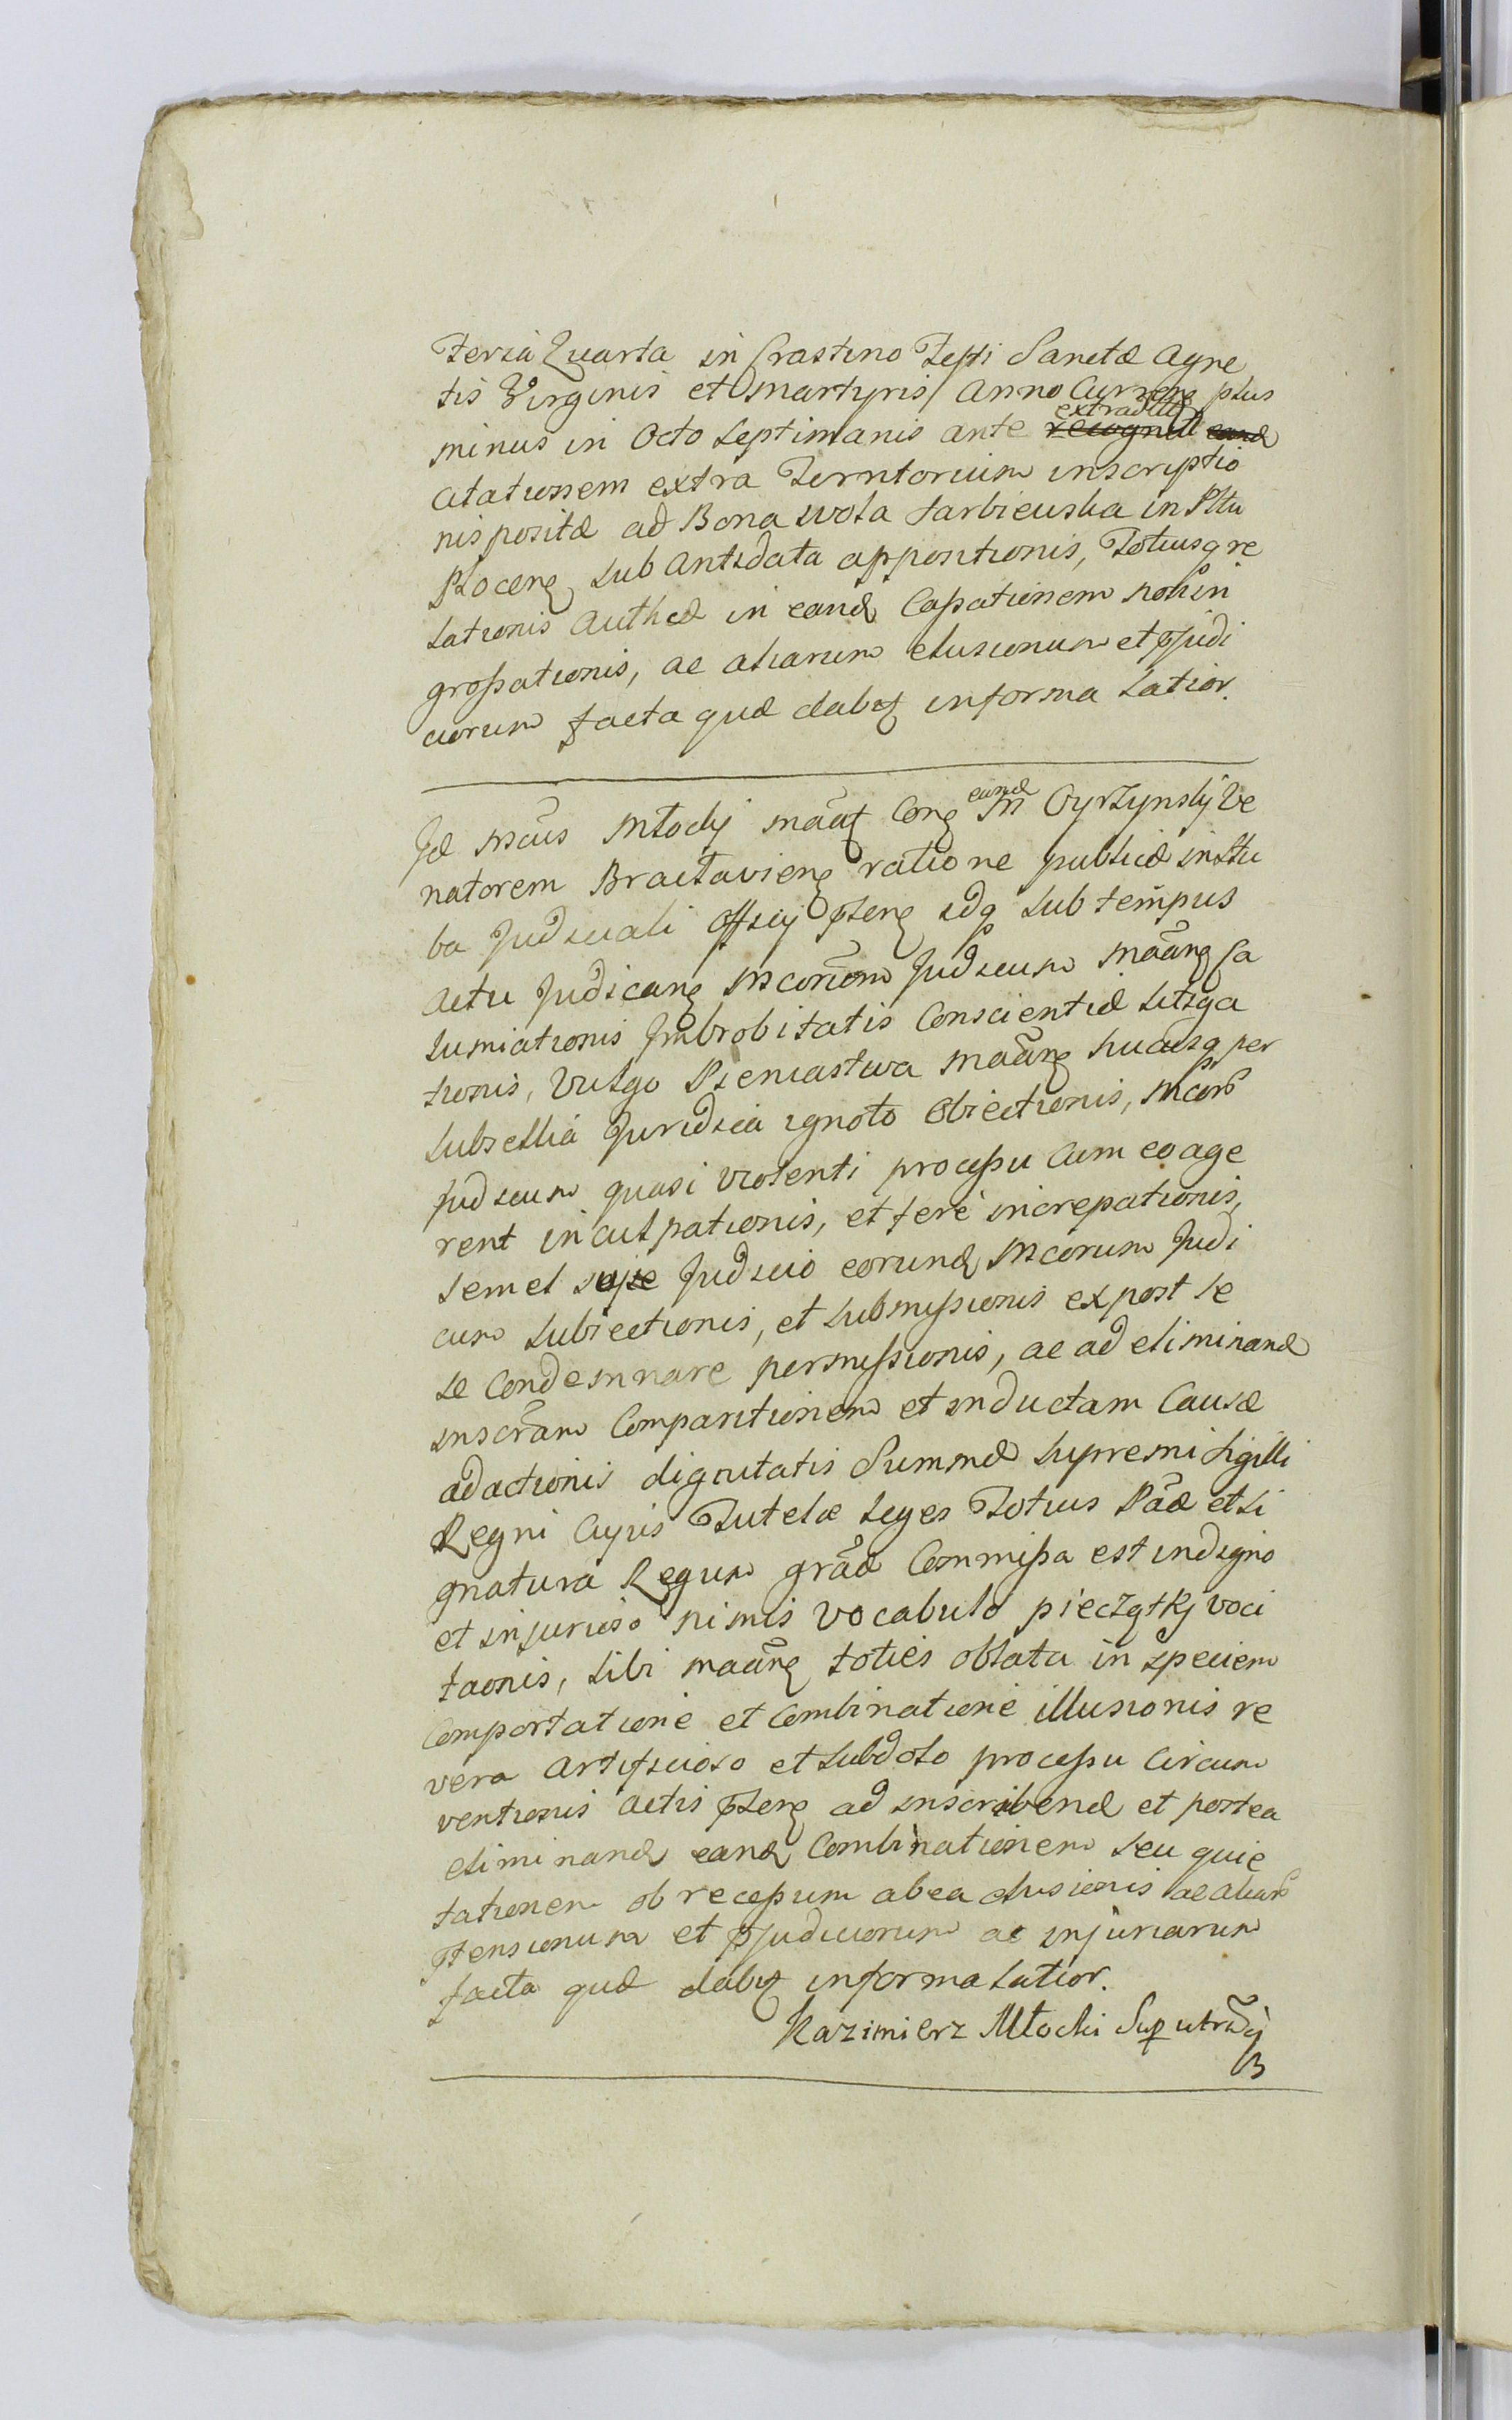 Feria Quarta in Crastino Festi Sanctæ Agne
tis Virginis et Martyris Anno Curren plus
minus in Octo Septimanis ante extradit
Citationem extra Territorium inscriptio
nis positæ ad Bona Wola Sarbiewska in Pttu
Plocen sub antidata appositionis, Totiusq re
lationis authcæ in eand Cassationem non in
grossationis, ac aliarum elusionum et pjudi
ciorum facta quæ dabit informa latior.
Id Mcus Młocki Con eund M Cyrzynskj Ve
natorem Braclavien ratione publicæ in Stu
ba Judiciali officij pten idq sub tempus
actu Judican Mcorum Judicum Ca
lumniationis Imbrobitatis Conscientiæ Litiga
tionis, Vulgo Pieniastwa hucusq per
Subsellia Juridica ignoto Obiectionis, Mcor
Judicum quasi violenti processu Cum eo age
rent inculpationis, et fere increpationis,
Semel Judicio eorund Mcorum Judi
cum Subiectionis, et Submissionis ex post se
se Condemnare permissionis, ac ad eliminand
inscram Comparitionem et inductam Causæ
adactionis dignitatis Summæ Supremi Sigilli
Regni Cujus Tutelæ Leges Totius et Si
gnatura Regum grãæ Commissa est indigno
et injurioso nimis vocabulo pieczątkj voci
taonis, Sibi toties oblata in Speciem
Comportatione et Combinatione illusionis re
vera artificioso et Subdolo processu Circum
ventionis actis pten ad inscribend et postea
eliminand eand Combinationem seu quie
tationem ob recessum ab ea elusionis ac aliar
ptensionum et pjudiciorum ac injuriarum
facta quæ dabit informa latior.
Kazimierz Młocki Sup